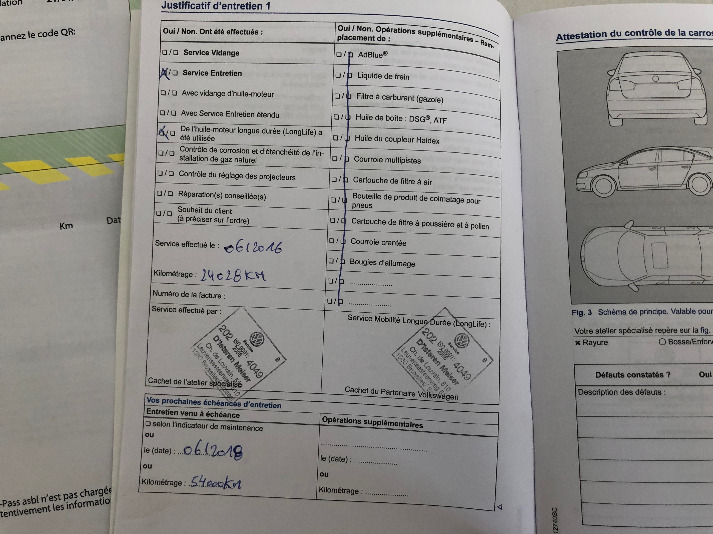 annez le code QR:
Km
-Pass asbl n'est pas chargée
tentivement les informatio
Justificatif d'entretien 1
Oui / Non. Ont été effectués :
☐/☐ Service Vidange
☒/☐ Service Entretien
☐/☐ Avec vidange d'huile-moteur
☐/☐ Avec Service Entretien étendu
☒/☐ De l'huile-moteur longue durée (LongLife) a
été utilisée
☐/☐ Contrôle de corrosion et d'étanchéité de l'in-
stallation de gaz naturel
☐/☐ Contrôle du réglage des projecteurs
☐/☐ Réparation(s) conseillée(s)
☐/☐ Souhait du client
(à préciser sur l'ordre)
Service effectué le : 06/2016
Kilométrage : 24028 KM
Numéro de la facture :
Service effectué par :
Cachet de l'atelier spécialisé
Oui / Non. Opérations supplémentaires – Rem-
placement de :
☐/☐ AdBlue®
☐/☐ Liquide de frein
☐/☐ Filtre à carburant (gazole)
☐/☐ Huile de boîte : DSG®, ATF
☐/☐ Huile du coupleur Haldex
☐/☐ Courroie multipistes
☐/☐ Cartouche de filtre à air
☐/☐ Bouteille de produit de colmatage pour
pneus
☐/☐ Cartouche de filtre à poussière et à pollen
☐/☐ Courroie crantée
☐/☐ Bougies d'allumage
☐/☐ ....................
☐/☐ ....................
Service Mobilité Longue Durée (LongLife) :
202 4049
D'Ieteren Meiser
202 4049
D'Ieteren Meiser
Cachet du Partenaire Volkswagen
Vos prochaines échéances d'entretien
Entretien venu à échéance
☐ selon l'indicateur de maintenance
ou
le (date) : 06/2018
ou
Kilométrage : 54000KM
Opérations supplémentaires
le (date) : ....................
ou
Kilométrage : ....................
Attestation du contrôle de la carros
Fig. 3 Schéma de principe. Valable pour
Votre atelier spécialisé repère sur la fig.
× Rayure ○ Bosse/Enfon
Défauts constatés ? Oui
Description des défauts :